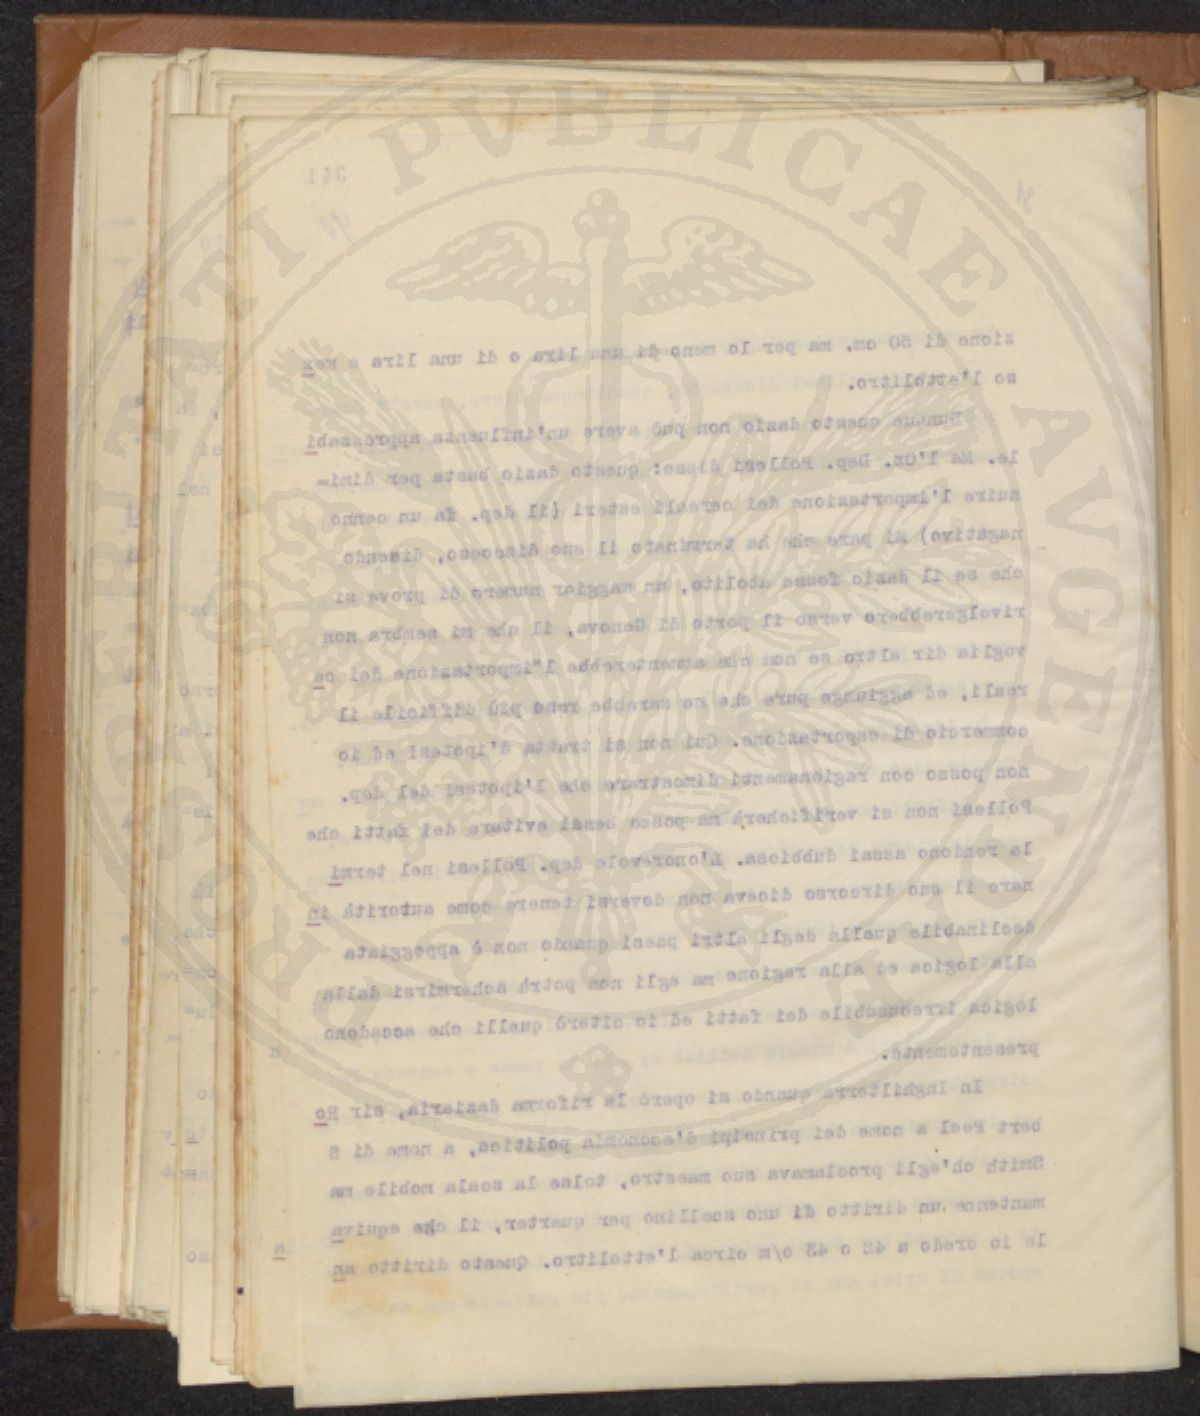 341
zione di 50 cm. ma per lo meno di una lira o di una lira e mez
so l'ettolitro.
Dunque questo dazio non può avere un'influenza apprezzabi
le. Ma l'On. Dep. Pollesi disse: questo dazio basta per dimi=
nuire l'importazione dei cereali esteri (il dep. fa un cenno
nagativo) Mi pare che ha terminato il suo discoso, disendo
che se il dazio fosse abolito, un maggior numero di prove si
rivolgerebbero verso il porto di Genova, il che mi sembra non
voglia dir altro se non che aumenterebbe l'importazione dei ce
reali, ed aggiunge pure che ne sarebbe reso più difficile il
commercio di esportazione. Qui non si tratta d'ipotesi ed io
non posso con ragionamenti dimostrare che l'ipotesi del dep.
Pollesi non si verificherà ma posso bensì evitare dei fatti che
la rendono assai dubbiosa. L'onorevole dep. Pollesi nel termi
nare il suo dircorso diceva non doversi tenere come autorità in
declinabile quella degli altri paesi quando non è appoggiata
alla logica ed alla ragione ma egli non potrà schermirsi dalla
logica irrecusabile dei fatti ed io citerò quelli che accadono
presentemente.
In Inghilterra quando si operò la riforma daziaria, sir Ro
bert Peel a nome dei principi d'economia politica, a nome di S
Smith ch'egli proclamava suo maestro, tolse la scala mobile ma
mantenne un diritto di uno scellino per quarter, il che equiva
le io credo a 42 o 43 c/m circa l'ettolitro. Questo diritto an
PROSPERITATI PVBLICAE AVGENDAE